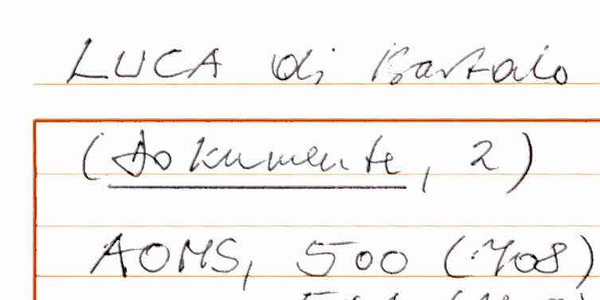 LUCA di Bartolo
(Dokumente, 2)
AOMS, 500 (:708)